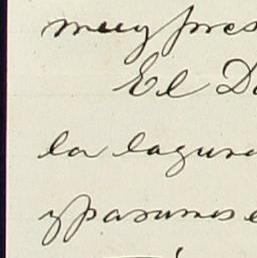 muy pres
El D
la laguna
y paramos e